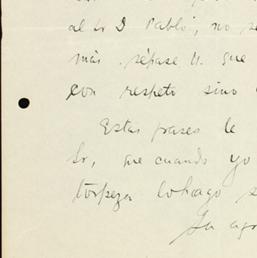 al Sr D Pablo, no se
más. sépase U. que
con respeto sino
Estas frases le
Sr, que cuando yo
torpeza lo hago s
Su agr